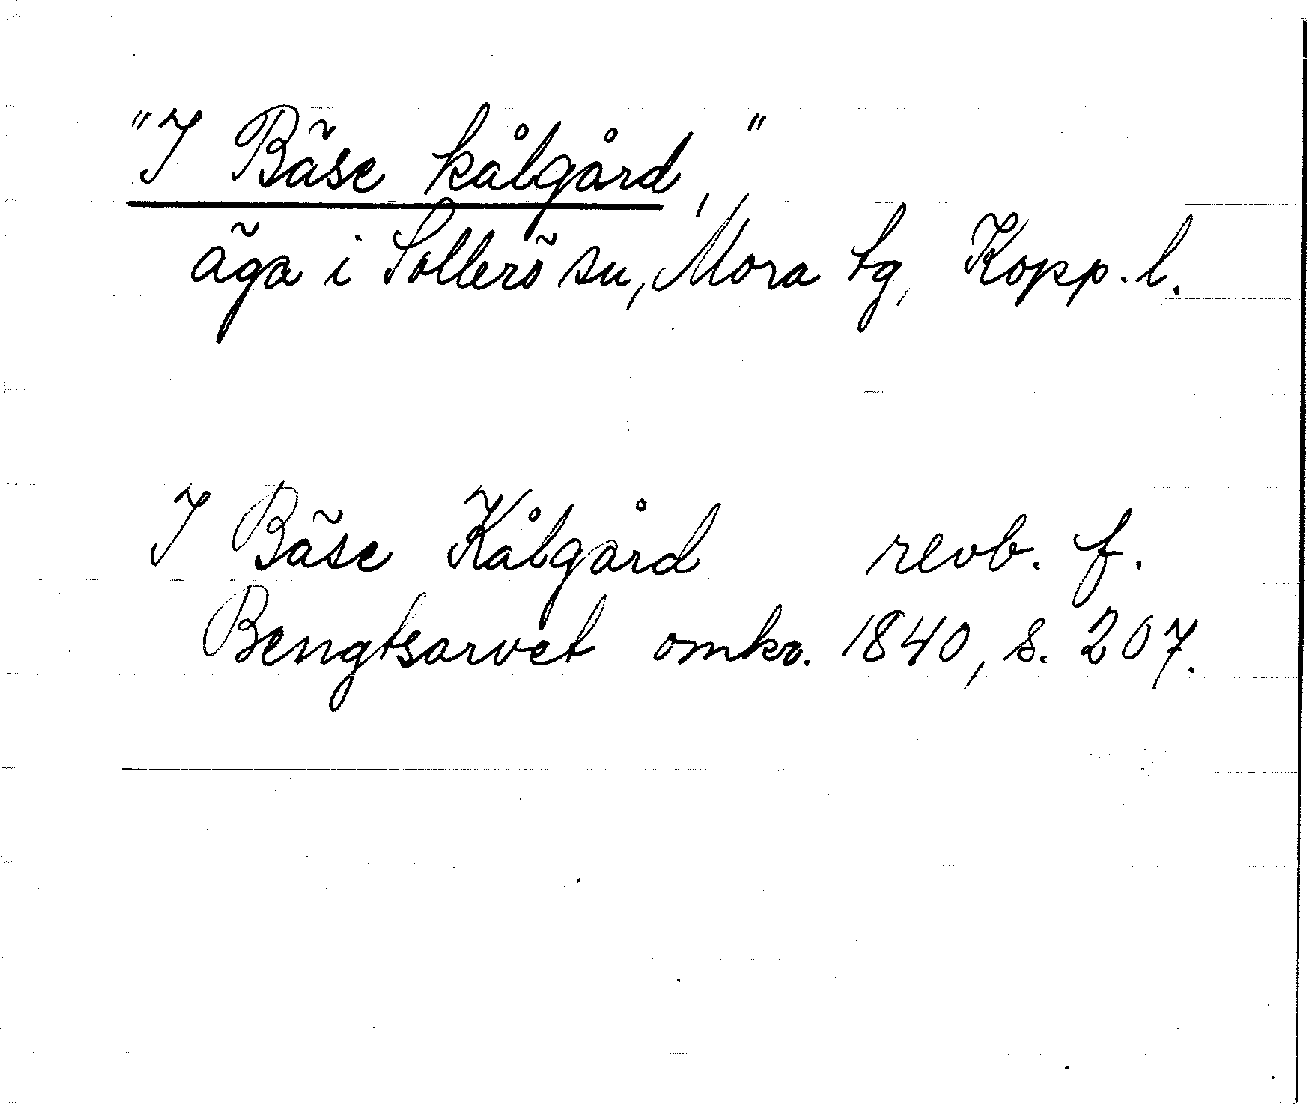 "I Bäse kålgård,"
äga i Sollerö sn, Mora tg, Kopp. l.
I Bäse Kålgård revb. f.
Bengtsarvet omkr. 1840, s. 207.